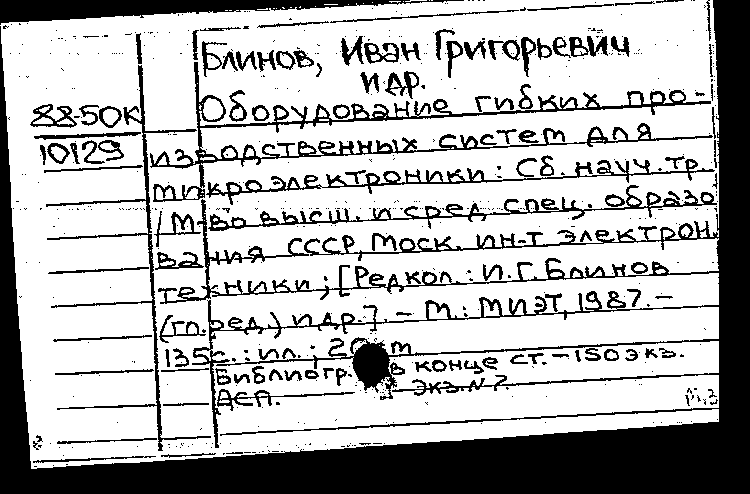 Блинов, Иван Григорьевич
и др.
88-50К
Оборудование гибких про-
10129
изводственных систем для
микроэлектроники: Сб. науч. тр.
/ М-во высш. и сред. спец. образо
вания СССР, Моск. ин-т электрон.
техники; [Редкол.: И.Г. Блинов
(гл. ред.) и др.]. – М.: МИЭТ, 1987. –
135 с.: ил.;
Библиогр. в конце ст. – 150 экз.
Деп. Экз. N 2.